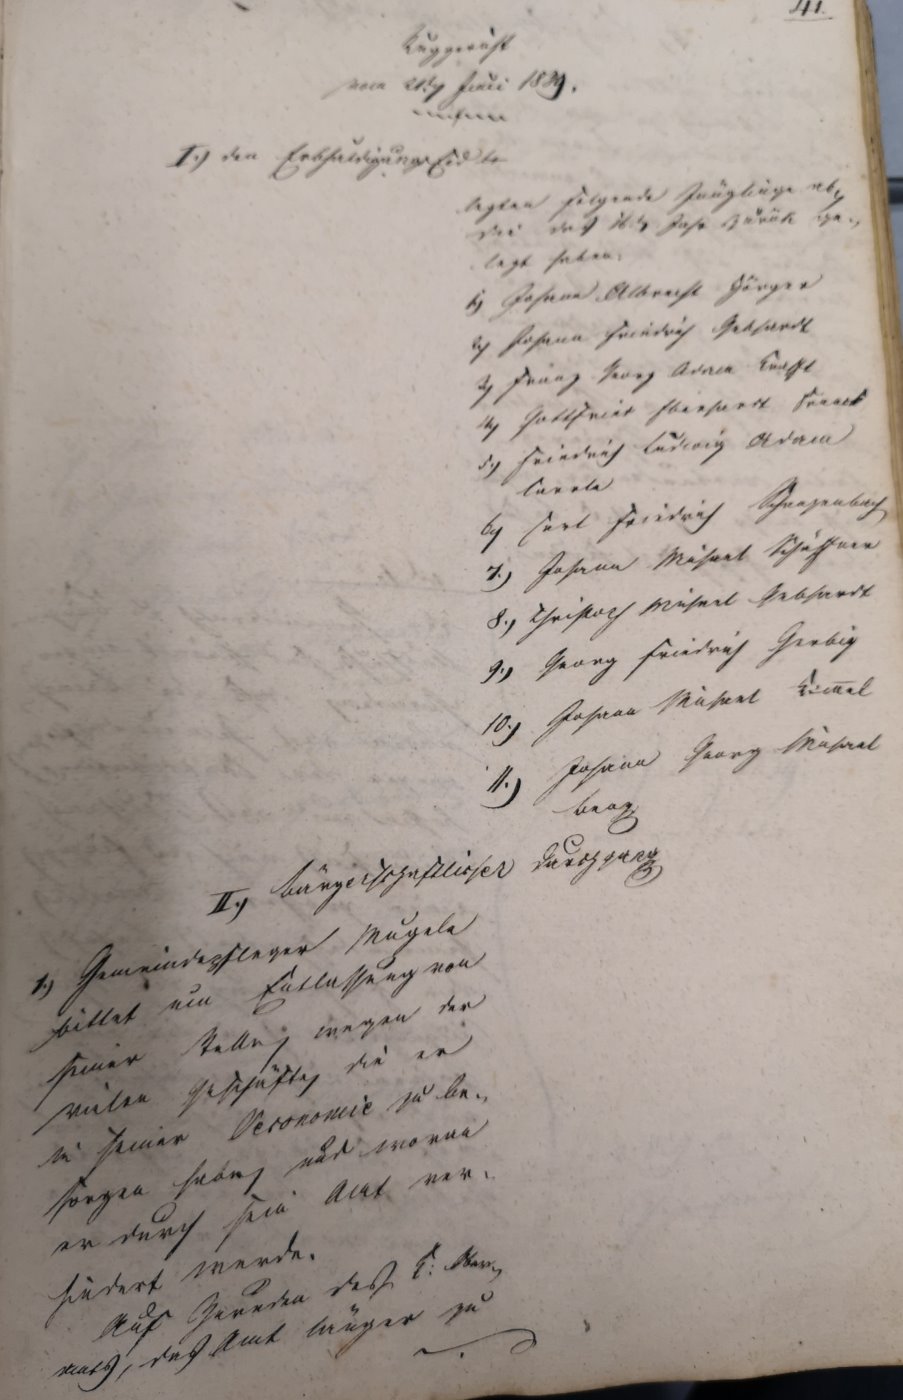 41.
Ruggericht
vom Juni 1839.
I.) den Erbhuldigungs Eid
legten folgende Jünglinge ab,
die das Jahr zurük ge-
legt haben:
1) Johann Albrecht
2) Johann Friedrich Gebhardt
3) Franz Georg Adam Krafft
4) Gottfried Eberhardt
5) Friedrich Ludwig Adam
6) Carl Friedrich
7.) Johann Michael Schäffner
8.) Christoph Michael Gebhardt
9.) Georg Friedrich Gerbig
10.) Johann Michael Kim̅el
11.) Johann Georg Michael
Berg
II.) Bürgerschaftlicher Durchgang
1.) Gemeindepfleger Mugele
bittet um Entlassung von
seiner Stelle, wegen der
vielen Geschäfte, die er
in seiner Oeconomie zu be-
sorgen habe, und woran
er durch sein Amt ver-
hindert werde.
Auf Zureden des K. Ober-
amts, das Amt länger zu